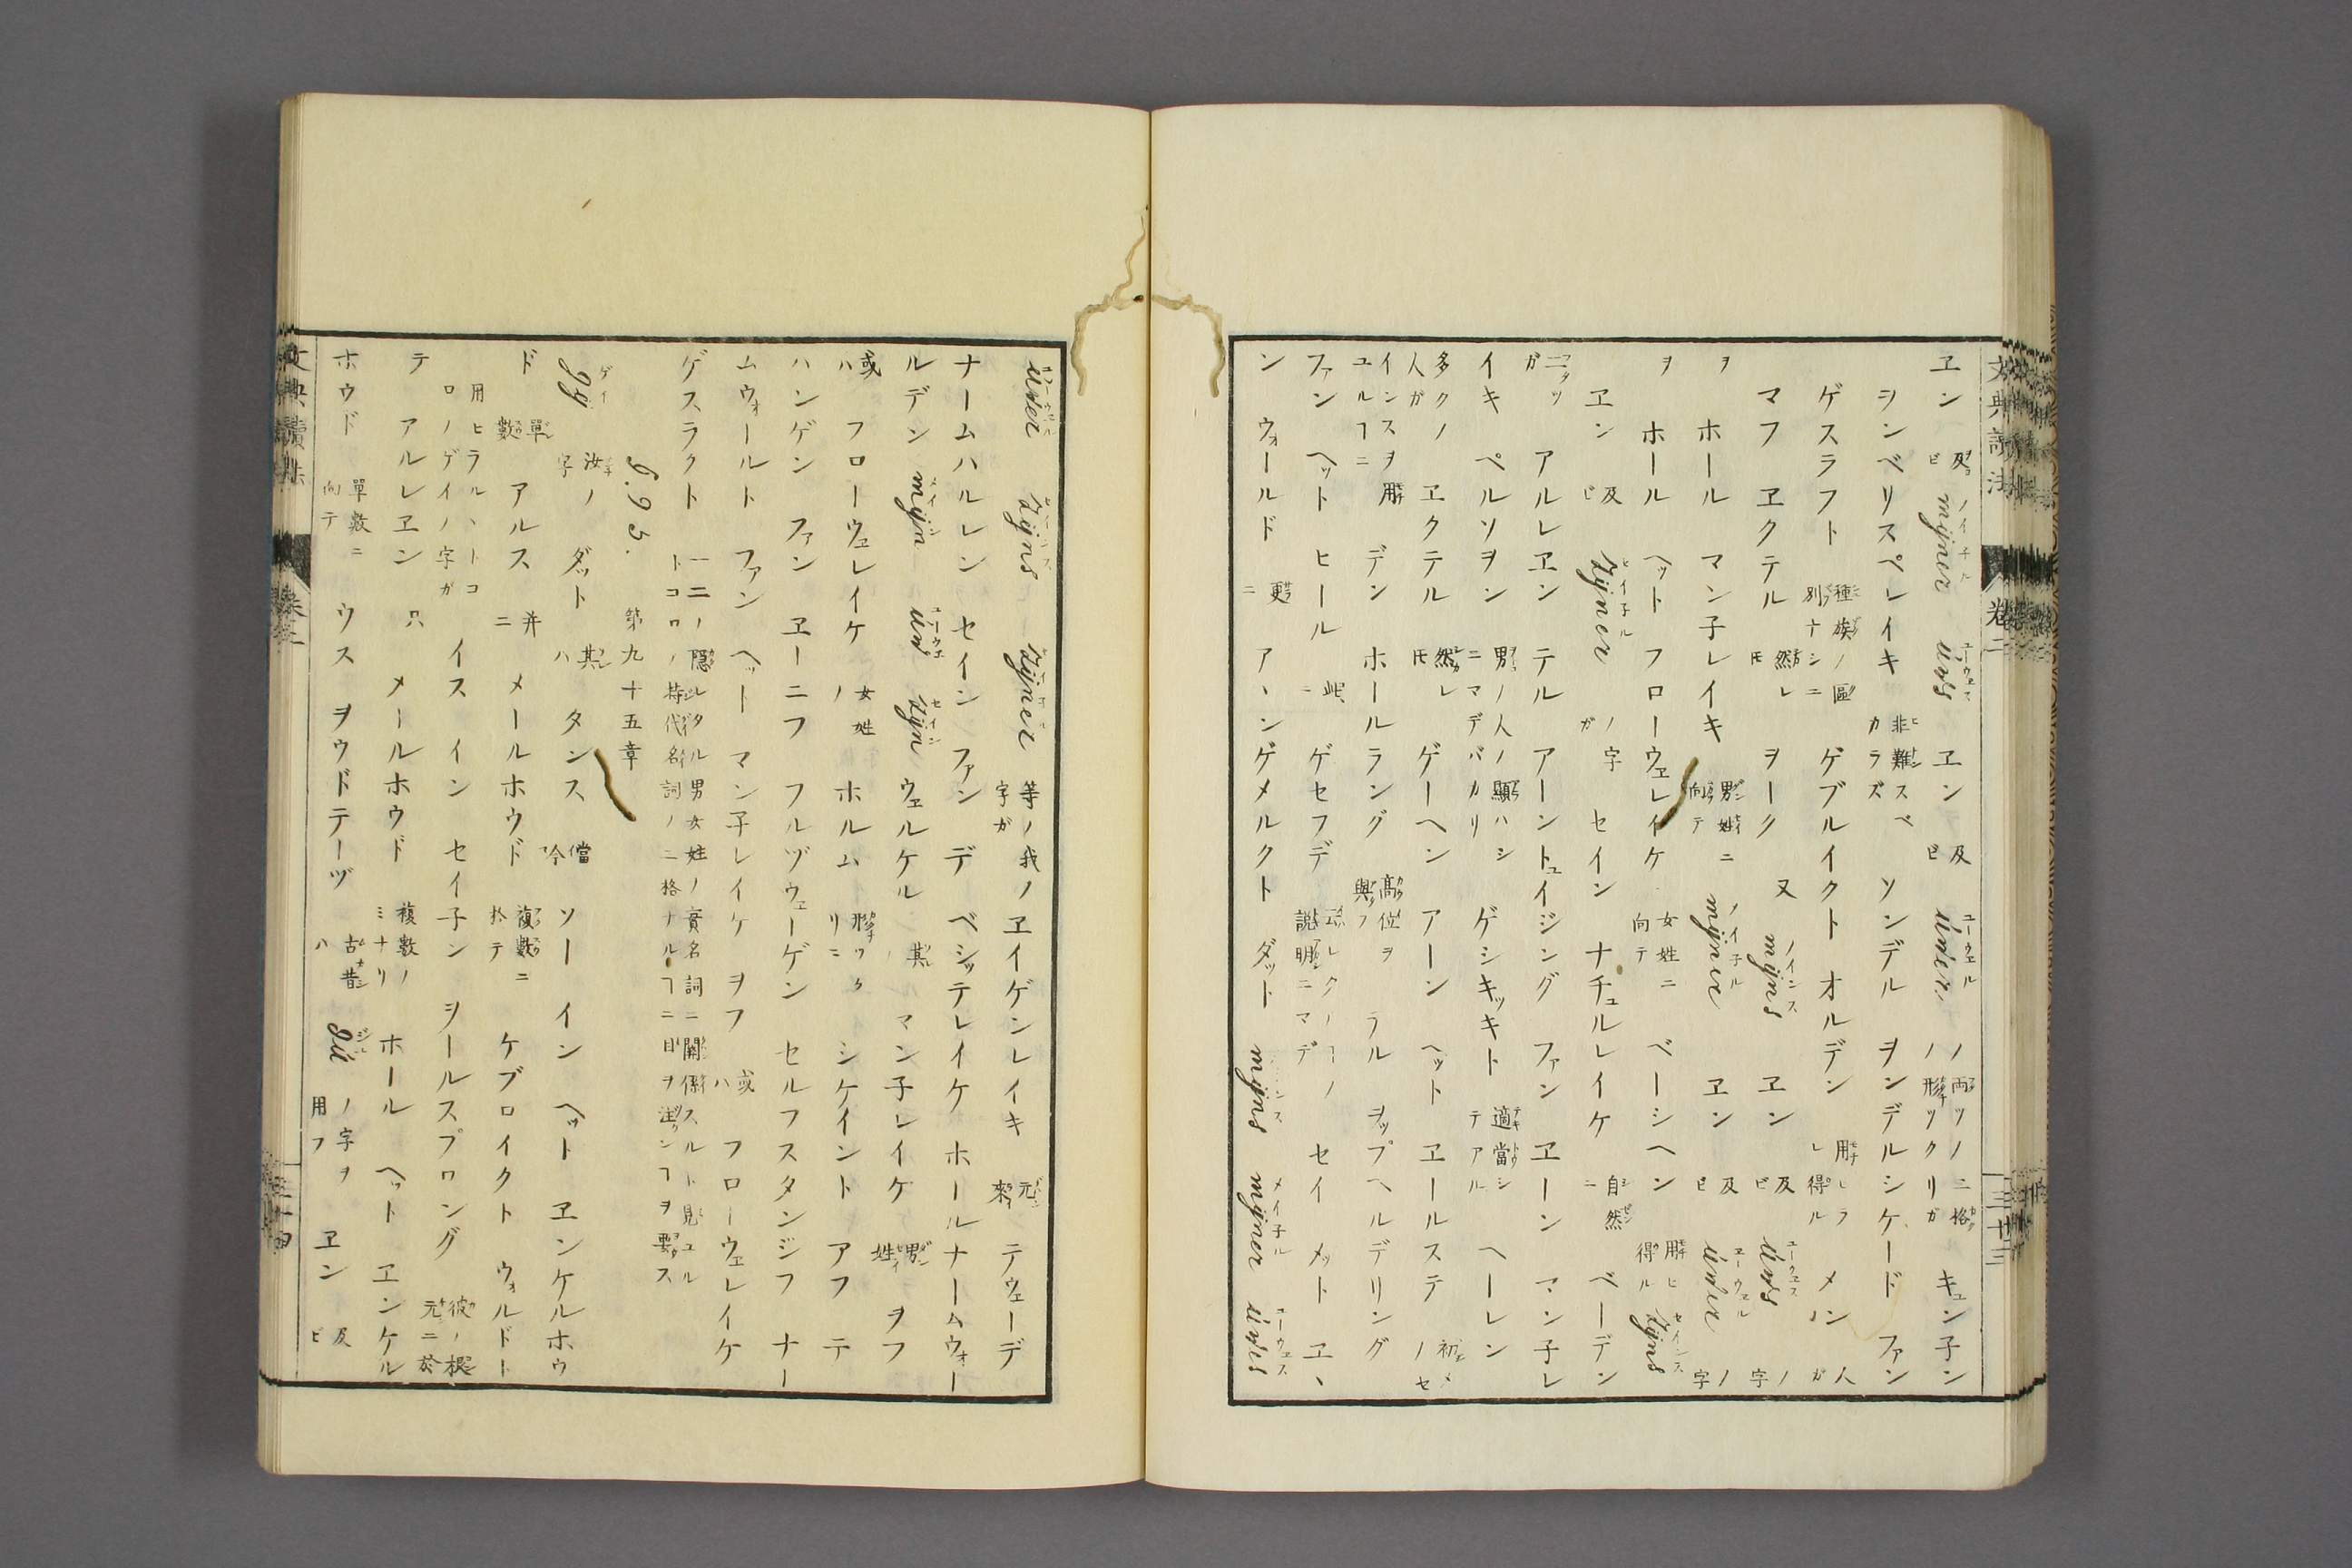 ヱン 及ビ mijner ノイ子ル uws ユーウェス ヱン 及ビ uwer. ユーウェル ノ両ツノ二格ノ形ツクリガ キュン子ン
ヲンベリスペレイキ 非難スベカラズ ソンデル ヲンデルシケード ファン
ゲスラフト 種族ノ區別ナシニ ゲブルイクト オルデン 用レラレ得ル メン 人ガ
マフ ヱクテル 然レ𪜈 ヲーク 又 mijns ノインス ヱン 及ビ uws ユーウェス ノ字
ヲ ホール マン子レイキ 男姓ニ向テ mijner ノイ子ル ヱン 及ビ uwer ユーウェル ノ字
ヲ ホール ヘット フローウェレイケ 女姓ニ向テ ベーシヘン 用ヒ得ル zijns セインス
ヱン 及ビ zijner セイ子ル ノ字ガ セイン ナチュルレイケ 自然ニ ベーデン
二ツガ アルレヱン テル アーントュイジング ファン ヱーン マン子レ
イキ ペルソヲン 男ノ人ノ顯ハシニマデバカリ ゲシキッキト 適當シテアル ヘーレン
多クノ人ガ ヱクテル 然レ𪜈 ゲーヘン アーン ヘット ヱールステ 初メノセ
インスヲ用ユルヿニ デン ホールラング 高位ヲ興フ ラル ヲップヘルデリング
ファン ヘット ヒール 此ニ ゲセフデ セイ メット ヱヽ
ン ウォールド 更ニ アヽンゲメルクト ダット mijns mijner メイ子ル uwes ユーウェス
uwer zijns zijner 等ノ我ノ字ガ ヱイゲンレイキ 元來 テウェーデ
ナームハルレン セイン ファン デ ベシッテレイケ ホールナームウォー
ルデン mijn メイン uw ユーウェ zijn セイン ウェルケル 其ノ マン子レイケ 男姓 ヲフ
或ハ フローウェレイケ 女姓ノ ホルム 形リニ シケイント アフ テ
ハンゲン ファン ヱーニフ フルヅウェーゲン セルフスタンジフ ナー
ムウォールト ファン ヘット マン子レイケ ヲフ 或ハ フローウェレイケ
ゲスラクト 一二ノ隠レタル男女姓ノ實名詞ニ關係スルト見ユルトコロノ持代名詞ノ二格ナルヿニ目ヲ注クンヿヲ要ス
§.95. 第九十五章
gij ゲイ 汝ノ字 ダット 其ハ タンス 當今 ソー イン ヘット ヱンケルホウ
ド 單數 アルス 并ニ メールホウド 複數ニ於テ ケブロイクト ウォルドト
用ヒラルヽトコロノゲイノ字ガ イス イン セイ子ン ヲールスプロング 彼ノ根元ニ於
テ アルレヱン 只 メールホウド 複數ノミナリ ホール ヘット ヱンケル
ホウド 單數ニ向テ ウス ヲウドテーヅ 古昔ハ du ノ字ヲ用フ ヱン 及ビ
文典讀法 卷二 三十三
文典讀法 卷二 三十四